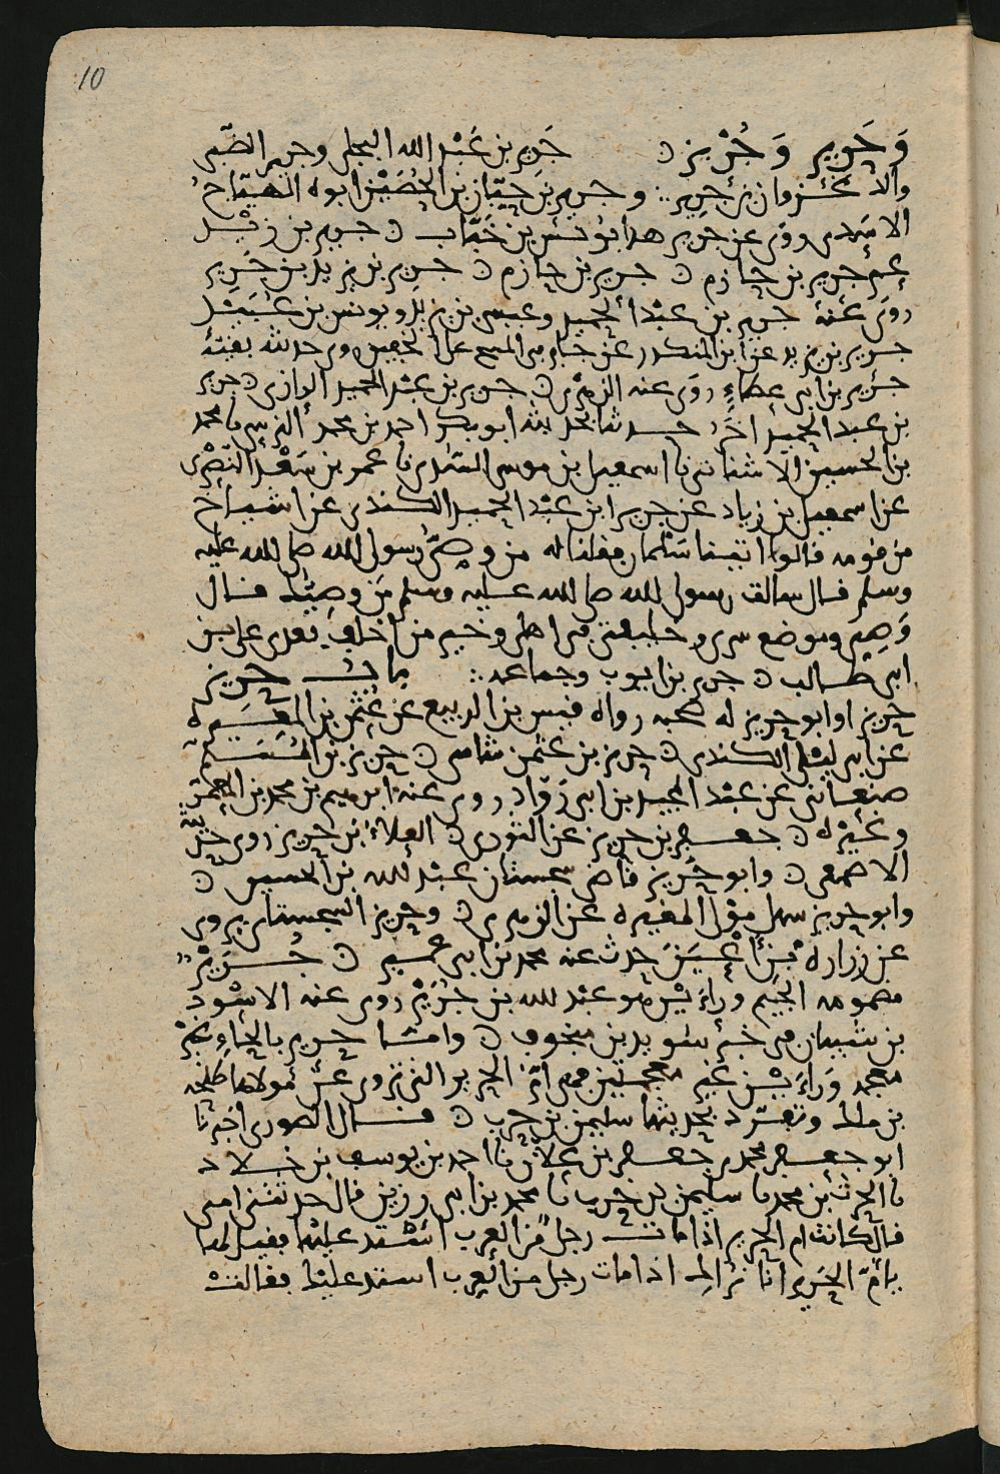 10
وَحَرِير وَجُرَيْز ٥ جَرِير بن عَبْد الله البجلي وجرير الضَّبي
والد غزوان بن جرير ∴ وجرير بن حيّان بن الحُصَيْن ابوه الهيّاج
الاسَدي روى عن جرير هذا يونس بن خبّاب ٥ جرير بن زيْد
عم جرير بن حازم ٥ جرير بن حازم ٥ جرير بن يزيد بن جَرير
روى عنه جرير بن عبد الحميد وعيسى بن يزيد ويونس بن عُبَيْد
جرير بن يزيد عن ابن المنكدر عن جابر في المسح على الخفين روى حديثه بقيّة
جرير بن ابي عطاءٍ روى عنه الزهري ٥ جرير بن عبد الحميد الرازي ٥ جرير
بن عبد الحميد اخَر حدثنا بحديثه ابو بكر احمد بن محمد نا محمد
بن الحسين الاشناني نا اسمعيل بن موسى السّدي نا عمر بن سَعْد النّصْري
عن اسمعيل بن زياد عن جرير ابن عبْد الحميد الكندي عن اشياخ
من قومه قالوا اتينا سَلمان فقلنا له من وصيّ رسول الله صلى الله عليه
وسلم قال سالت رسول الله صلى الله عليه وسلم مَن وصِيّه قال
وَصِيي وموضع سري وخليفتي في اهلي وخير من اخلف بعدي علي بن
ابي طالب ٥ جرير بن ايوب وجماعه ∴ باب حريز
حريز او ابو حريز له صحبه رواه قيس بن الربيع عن عثمن بن المغيره
عن ابي ليلى الكندي ٥ حريز بن عثمن شامي ٥ حريز بن المسلم
صنعاني عن عبْد المجيد بن ابي رَوّاد روى عنه ابرهيم بن محمد بن المعمر
وغيْره ٥ جعفر بن حريز عن الثوري ٥ العلاءُ بن حريز روى حديثه
الاصمعي ٥ وابو حَرِيز قاضي سجستان عبْد الله بن الحسين ٥
وابو حريز سهل مولى المغيره عن الزهري ٥ وحريز السجستاني يروي
عن زراره بن اعْيَنَ حدث عنه محمد بن ابي عمير ٥ جُرَيْر
مضمومه الجيم وراءَيْن هو عبْد الله بن جُرَيْر روى عنه الاسْود
بن شيبان في خبر سُويد بن منجوف ٥ وامّا حرير بالحاءِ غيْر
معجمه وَراءَيْن غير معجمتين فهي امّ الحرير التي تروي عن مولاها طلحه
بن مالك وتفرّد بحديثها سليمن بن حرب ٥ قال الصوري اخبرنا
ابو جعفر محمد بن جعفر بن علان نا احمد بن يوسف بن خلاد
نا الحرث بن محمد نا سليمن بن حرب نا محمد بن ابي رزين قال حدثتني امي
قال كانت ام الحرير اذا مات رجل من العرب اشتد عليْها فقيل لها
يا امّ الحرير انا نراك اذا مات رجل من العرب اشتد عليْك فقالتْ